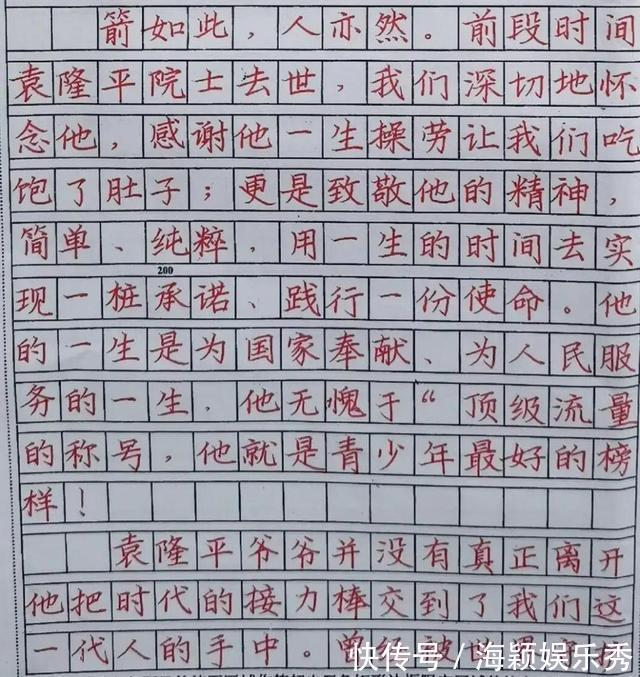 箭如此，人亦然。前段时间
袁隆平院士去世，我们深切地怀
念他，感谢他一生操劳让我们吃
饱了肚子；更是致敬他的精神，
简单、纯粹，用一生的时间去实
200
现一桩承诺、践行一份使命。他
的一生是为国家奉献、为人民服
务的一生．他无愧于“顶级流量
的称号，他就是青少年最好的榜
样！
袁隆平爷爷并没有真正离开
他把时代的接力棒交到了我们这
一代人的手中。曾经被世
快传号／海颖娱乐秀